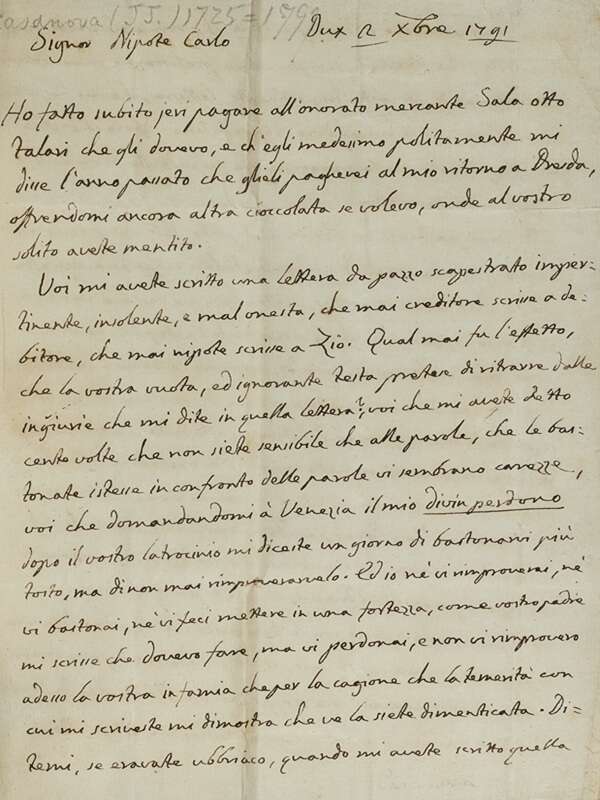 Casanova (J J.) 1725=179
Signor Nipote Carlo Dux 2 Xbre 1791
Ho fatto subito jeri pagare all'onorato mercante Sala otto
talari che gli dovevo, e ch'egli medesimo politamente mi
disse l'anno passato che glieli pagherei al mio ritorno a Dresda,
offrendomi ancora altra cioccolata se volevo, onde al vostro
solito aveste mentito.
Voi mi avete scritto una lettera da pazzo scapestrato imper=
tinente, insolente, e mal onesta, che mai creditore scrisse a de=
bitore, che mai nipote scrisse a Zio. Qual mai fu l'effetto,
che la vostra vuota, ed ignorante testa pretese di ritrarre dalle
ingiurie che mi dite in quella lettera?, voi che mi avete detto
cento volte che non siete sensibile che alle parole, che le bas=
tonate istesse in confronto delle parole vi sembrano carezze,
voi che domandandomi à Venezia il mio divin perdono
dopo il vostro latrocinio mi diceste un giorno di bastonarvi più
tosto, ma di non mai rimproverarvelo. Ed io nè vi rimproverai, nè
vi bastonai, nè vi feci mettere in una fortezza, come vostro padre
mi scrisse che dovevo fare, ma vi perdonai, e non vi rimprovero
adesso la vostra infamia che per la cagione che la temerità con
cui mi scriveste mi dimostra che ve la siete dimenticata. Di=
temi, se eravate ubbriaco, quando mi avete scritto quella